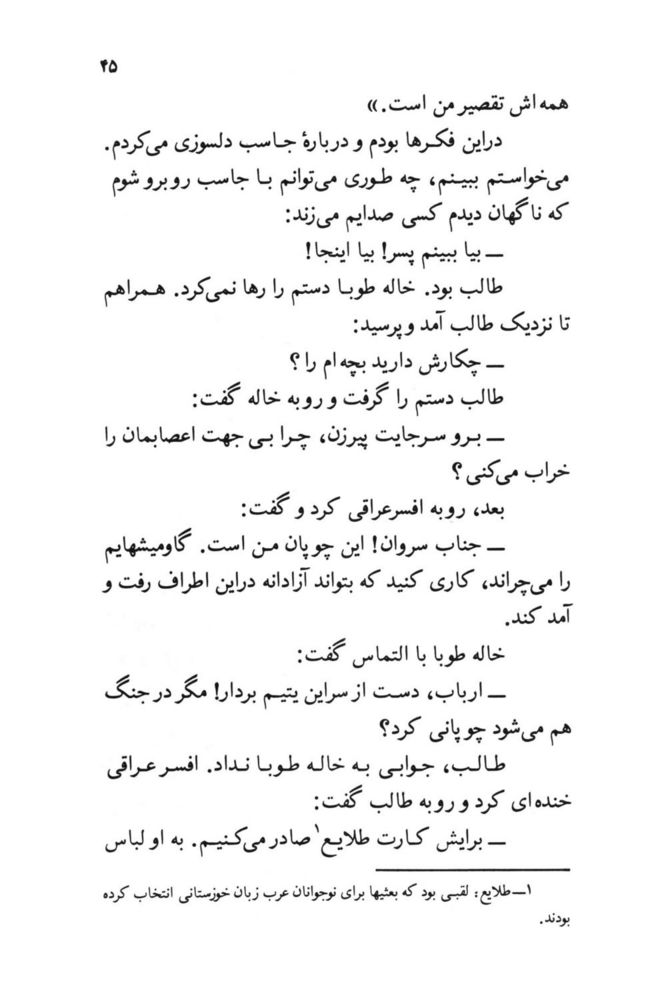 ۴۵
همه‌اش تقصیر من است.»
دراین فکرها بودم و دربارهٔ جاسب دلسوزی می‌کردم.
می‌خواستم ببینم، چه طوری می‌توانم با جاسب روبرو شوم
که ناگهان دیدم کسی صدایم می‌زند:
ــ بیا ببینم پسر! بیا اینجا!
طالب بود. خاله طوبا دستم را رها نمی‌کرد. همراهم
تا نزدیک طالب آمد و پرسید:
ــ چکارش دارید بچه‌ام را؟
طالب دستم را گرفت و روبه خاله گفت:
ــ برو سرجایت پیرزن، چرا بی جهت اعصابمان را
خراب می‌کنی؟
بعد، روبه افسرعراقی کرد و گفت:
ــ جناب سروان! این چوپان من است. گاومیشهایم
را می‌چراند، کاری کنید که بتواند آزادانه دراین اطراف رفت و
آمد کند.
خاله طوبا با التماس گفت:
ــ ارباب، دست از سراین یتیم بردار! مگر در جنگ
هم می‌شود چوپانی کرد؟
طالب، جوابی به خاله طوبا نداد. افسر عراقی
خنده‌ای کرد و روبه طالب گفت:
ــ برایش کارت طلایع۱ صادر می‌کنیم. به او لباس
۱ــ طلایع: لقبی بود که بعثیها برای نوجوانان عرب زبان خوزستانی انتخاب کرده
بودند.